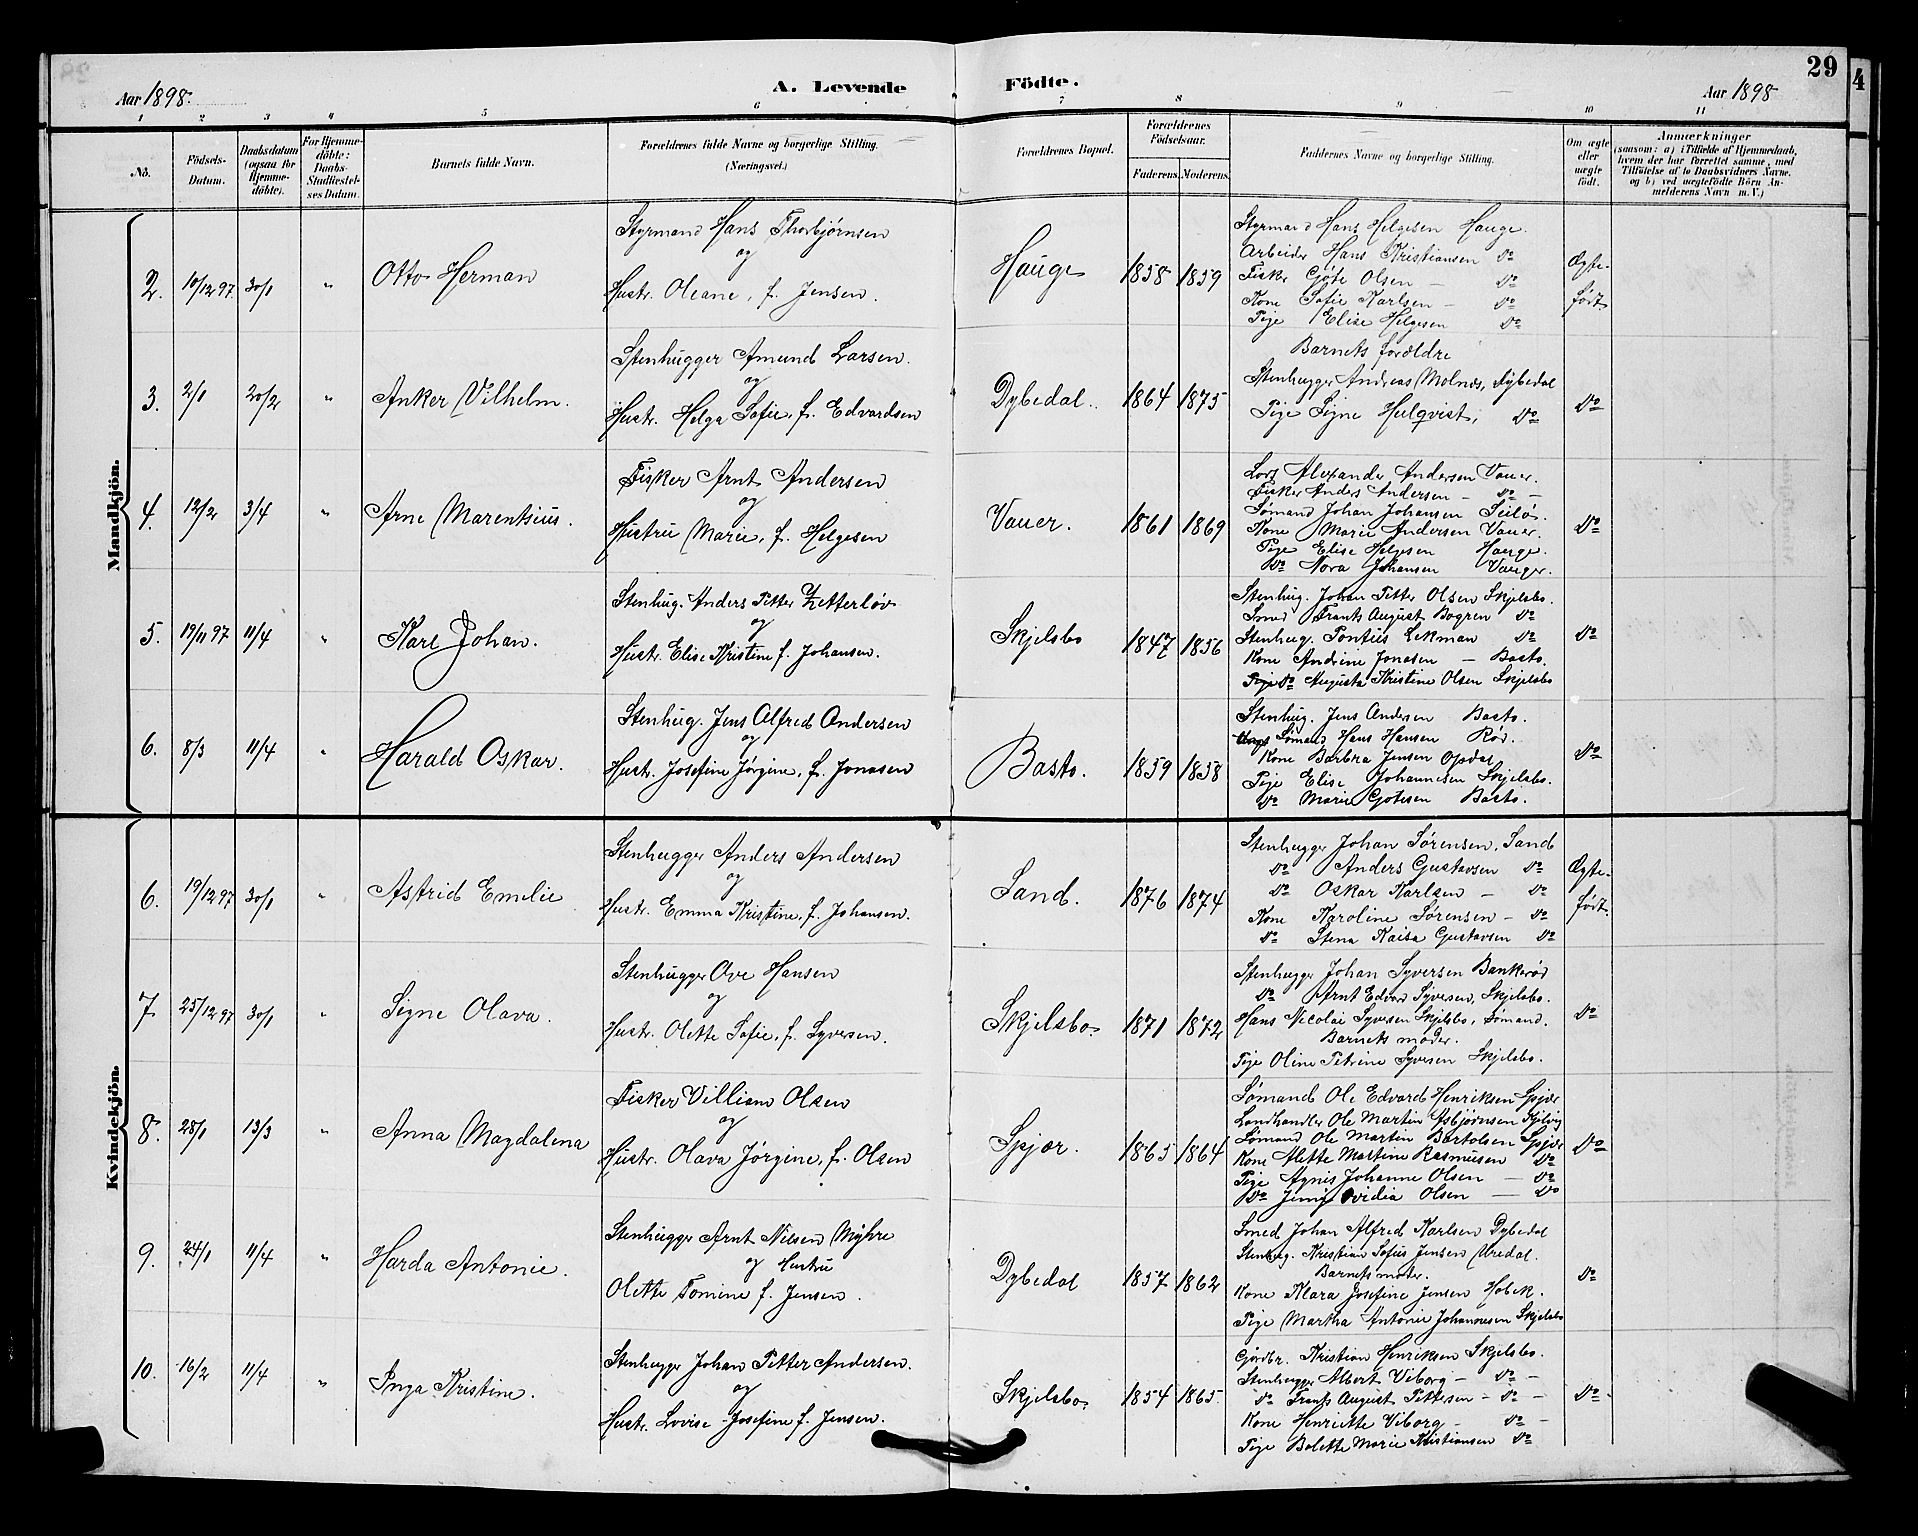 29
4
Aar 1898.
A. Levende Födte.
Aar 1898
1 2 3 4 5 6 7 8 9 10 11
No.
Födsels-Datum.
Daabsdatum (ogsaa for Hjemme-döbte).
For Hjemme-döbte: Daabs-Stadfæstel-ses Datum.
Barnets fulde Navn.
Forældrenes fulde Navne og borgerlige Stilling. (Næringsvei.)
Forældrenes Bopæl.
Forældrenes Födselsaar.
Faderens. Moderens.
Faddernes Navne og borgerlige Stilling.
Om ægte eller uægte födt.
Anmærkninger
(saasom: a) i Tilfælde af Hjemmedaab, hvem der har forrettet samme, med Tilföielse af to Daabsvidners Navne. og b) ved uægtefödte Börn An-melderens Navn m. V.)
Mandkjön.
2. 10/12 97. 30/1 " Otto Herman
Styrmand Hans Thorbjørnsen
og
Hustr. Oleane, f. Jensen.
Hauge 1858 1859
Styrmand Hans Helgesen Hauge.
Arbeider Hans Kristiansen Do
Fisker Gjøte Olsen - Do
Kone Sofie Karlsen - Do
Pige Elise Helgesen Do
Ægte-født
3. 2/1 20/2 " Anker Vilhelm.
Stenhugger Amund Larsen.
og
Hustr. Helga Sofie, f. Edvardsen
Dybedal. 1864 1875
Barnets forældre
Stenhugger Andreas Molnes, Dybedal
Pige Signe Hulqvist, Do
Do
4. 12/2 3/4 " Arne Marentsius.
Fisker Arnt Andersen
og
Hustru Marie, f. Helgesen
Vauer. 1861 1869
Lods Alexander Andersen Vauer.
Fisker Anders Andersen - Do -
Sømand Johan Johansen
Kone Marie Andersen Vauer.
Pige Elise Helgesen Hauge.
Do Nora Johansen
Do
5. 19/11 97 11/4 " Karl Johan.
Stenhug. Anders Petter Zetterløv
og
Hustr. Elise Kristine f. Johansen.
Skjelsbo 1847 1856
Stenhug. Johan Petter Olsen Skjelsbo.
Smed Frants August Bogren Do
Stenhug. Pontus Ekman Do
Kone Andrine Jonasen - Basto.
Pige Do Augusta Kristine Olsen Skjelsbo
Do
6. 8/3 11/4 " Harald Oskar.
Stenhug. Jens Alfred Andersen
og
Hustr. Josefine Jørgine, f. Jonasen
Basto. 1859 1858
Stenhug. Jens Andersen Basto.
Sømand Hans Hansen Rød.
Kone Barbra Jensen Opdal
Pige Elise Johannesen Skjelsbo.
Do Marie Gjøtesen Basto.
Do
Kvindekjön.
6. 19/12 97 30/1 " Astrid Emelie
Stenhugger Anders Andersen
og
Hustr. Emma Kristine, f. Johansen.
Sand. 1876 1874
Stenhugger Johan Sørensen, Sand
Do Anders Gustavsen Do
Do Oskar Karlsen - Do
Kone Karoline Sørensen - Do
Do Stena Kaisa Gustavsen Do
Ægte-født.
7. 25/12 97 30/1 " Signe Olava.
Stenhugger Ove Hansen
og
Hustr. Olette Sofie, f. Syversen.
Skjelsbo. 1871 1872
Stenhugger Johan Syversen Bankerød
Do Arnt Edvard Syversen, Skjelsbo.
Hans Nicolai Syversen Skjelsbo, Sømand.
Barnets moder.
Pige Oline Petrine Syversen Skjelsbo.
Do
8. 28/1 13/3 " Anna Magdalena
Fisker Villiam Olsen
og
Hustr. Olava Jørgine, f. Olsen
Spjær. 1865 1864
Sømand Ole Edvard Henriksen Spjær
Landhandler Ole Martin Asbjørnsen
Sømand Ole Martin Bartolsen Spjær
Kone Alette Martine Rasmussen Do
Pige Agnis Johanne Olsen - Do
Do Jenny Ovidia Olsen - Do
Do
9. 24/1 11/4 " Harda Antonie.
Stenhugger Arnt Nilsen Myhre
og Hustru
Olette Tomine f. Jensen.
Dybedal 1857 1862
Smed Johan Alfred Karlsen Dybedal
Stenhug. Kristian Sofus Jensen Uredal.
Barnets moder.
Kone Klara Josefine Jensen Hobek.
Pige Martha Antonie Johannesen Skjelsbo
Do
10. 16/2 11/4 " Inga Kristine.
Stenhugger Johan Petter Andersen.
og
Hustr. Lovise Josefine f. Jensen.
Skjelsbo. 1854 1865.
Gjordbr. Kristian Henriksen Skjelsbo.
Stenhugger Albert Viborg - Do -
Do Frants August Pettersen - Do -
Kone Henriette Viborg - Do -
Pige Bolette Marie Kristiansen Do
Do